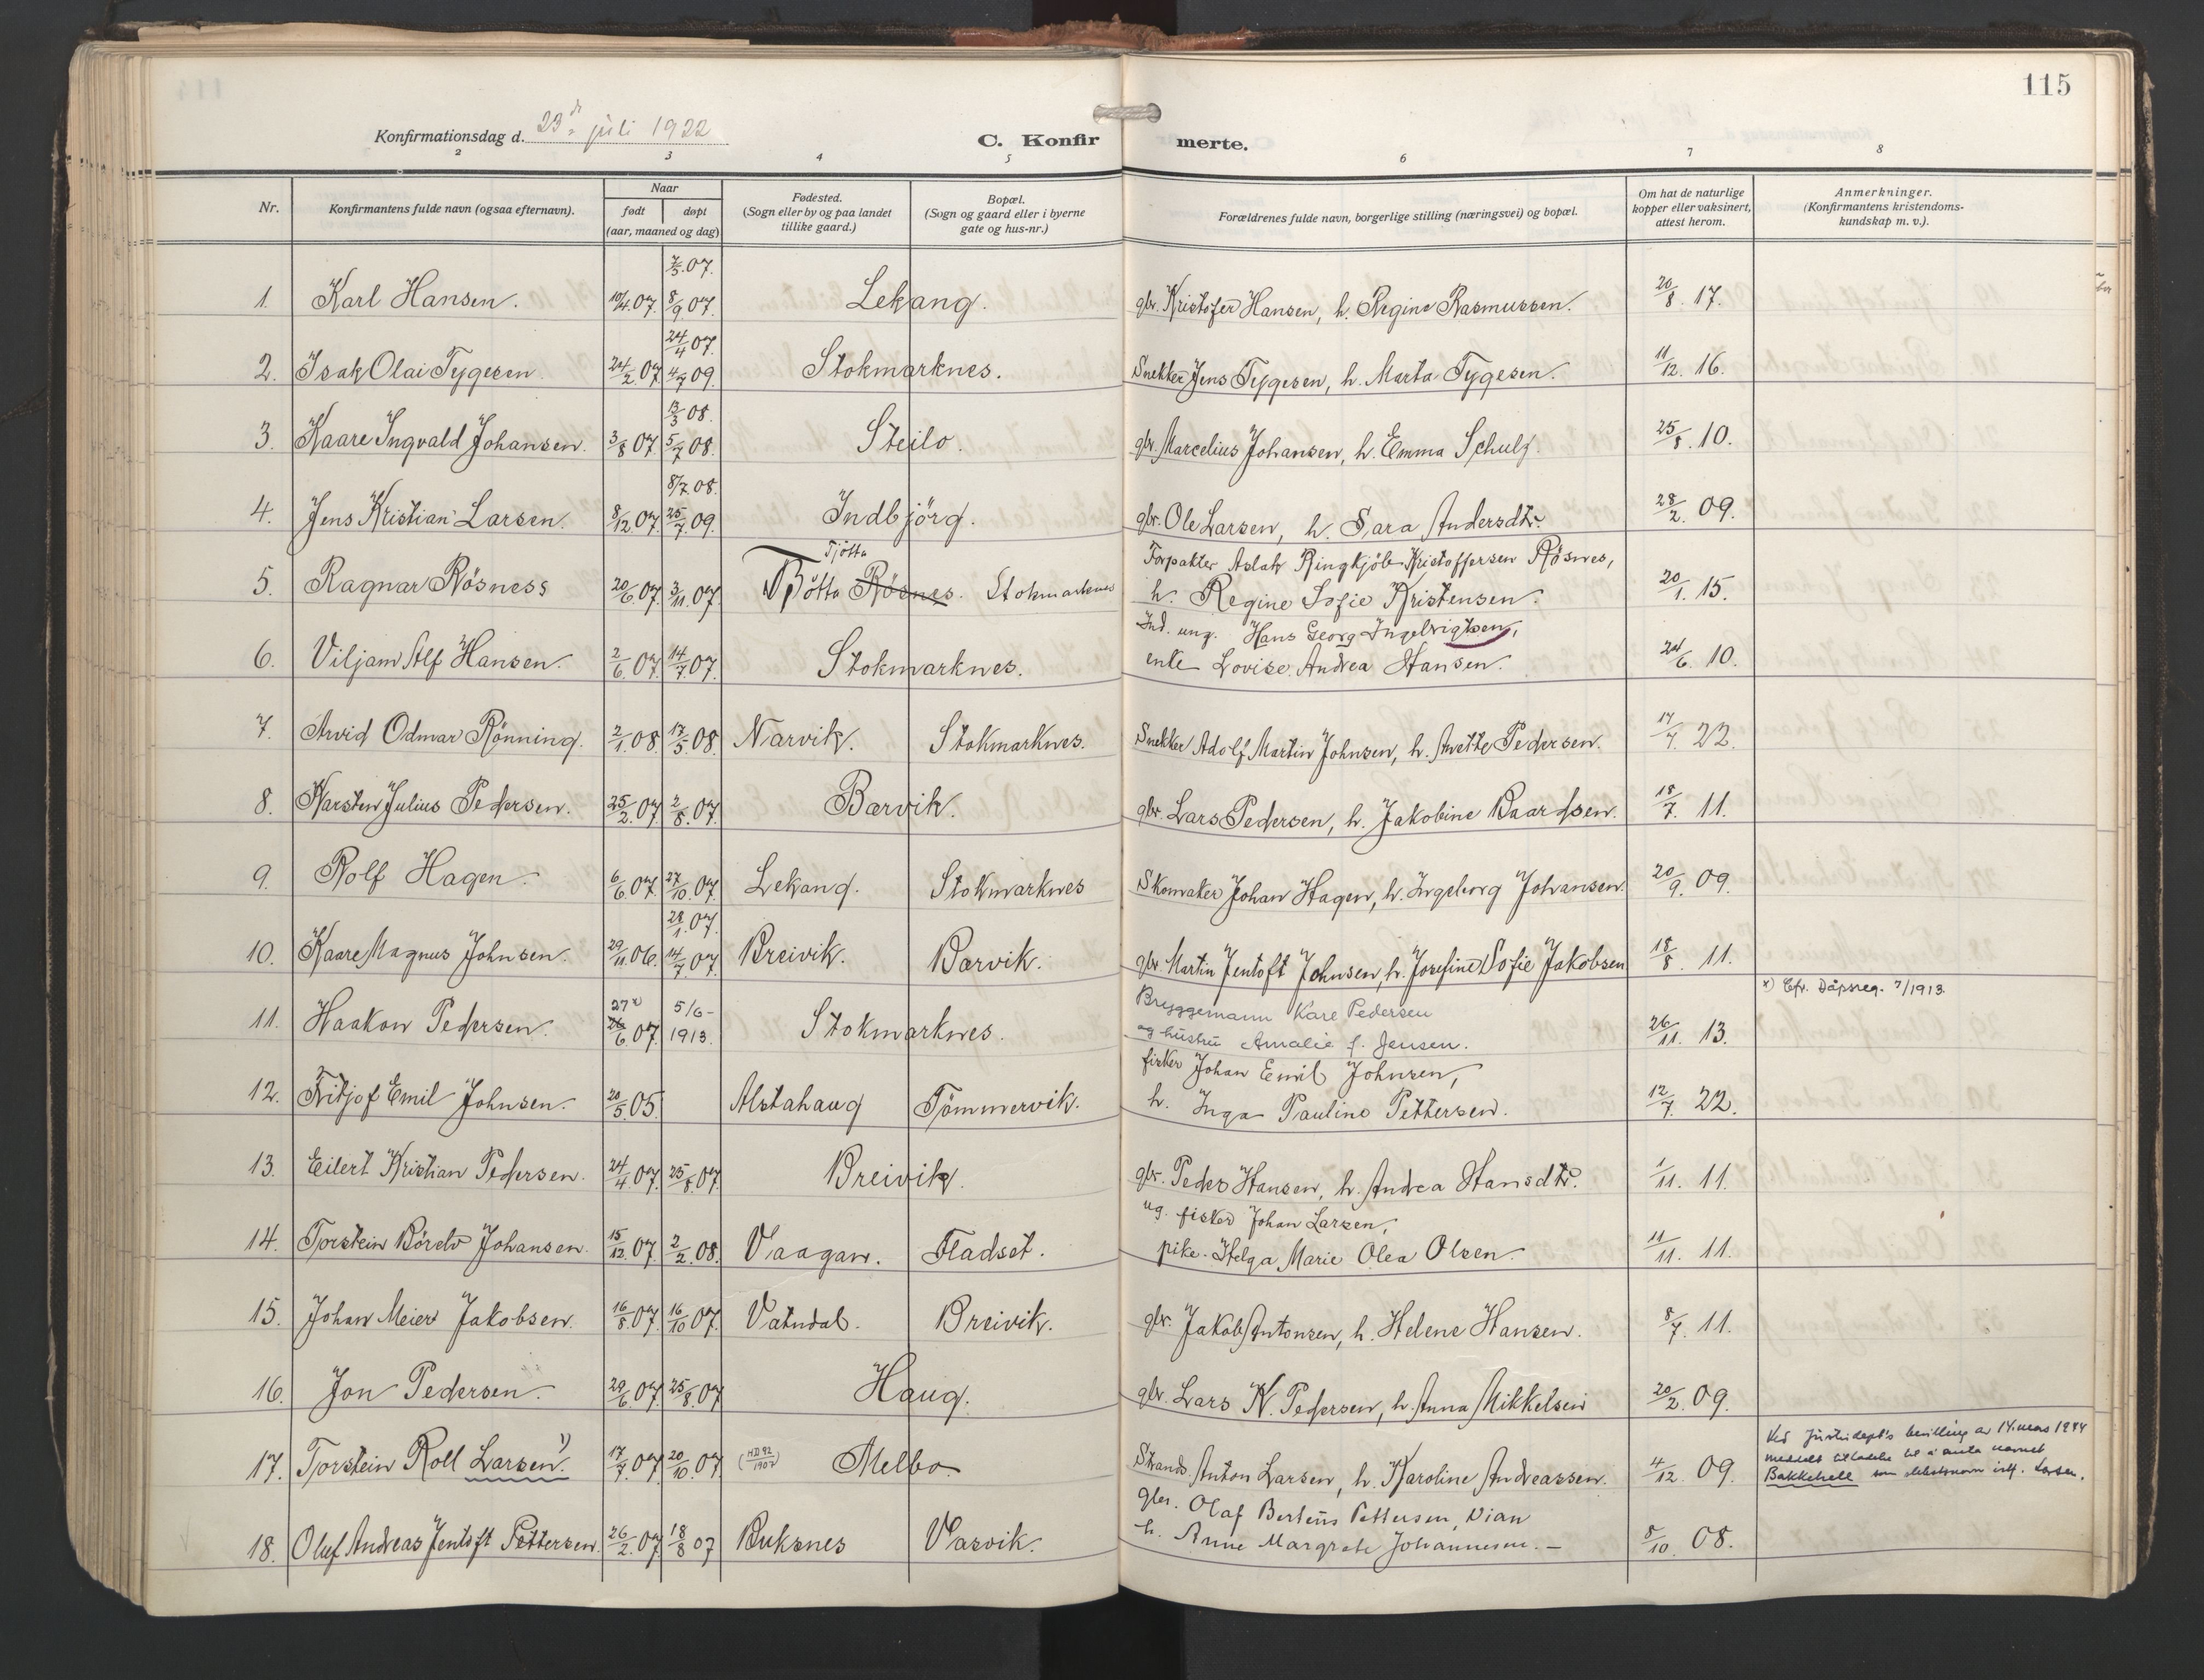 115
Konfirmationsdag d. 23de juli 1922
C. Konfirmerte.
2 3 4 5 6 7 8
Nr.
Konfirmantens fulde navn (ogsaa efternavn).
Naar
født døpt
(aar, maaned og dag)
Fødested.
(Sogn eller by og paa landet
tillike gaard.)
Bopæl.
(Sogn og gaard eller i byerne
gate og hus-nr.)
Forældrenes fulde navn, borgerlige stilling (næringsvei) og bopæl.
Om hat de naturlige
kopper eller vaksinert,
attest herom.
Anmerkninger.
(Konfirmantens kristendoms-
kundskap m. v.).
7/5 07.
1. Karl Hansen. 10/4 07. 8/9 07. Lekang. gbr. Kristofer Hansen, h. Regine Rasmussen. 20/8. 17.
24/4 07.
2. Isak Olai Tygesen 24/2 07. 4/7 09. Stokmarknes. Snekker Jens Tygesen, h. Marta Tygesen. 11/12. 16.
13/3 08.
3. Kaare Ingvald Johansen. 3/8 07. 5/7 08. Steilo. gbr. Marcelius Johansen, h. Emma Schulz. 25/8. 10.
8/7 08.
4. Jens Kristian Larsen. 8/12 07. 25/7 09. Indbjörg. gbr. Ole Larsen, h. Sara Andersdtr. 28/2. 09.
Tjötta
Forpakter Aslak Ringkjöb Kristoffersen Rösnes,
5. Ragnar Rösness 20/6 07. 3/11 07. Tjötta Rösnes. Stokmarknes h. Regine Sofie Kristensen. 20/1. 15.
Ind. ung. Hans Georg Ingebrigtsen,
6. Viljam Alf Hansen. 2/6 07. 14/7 07. Stokmarknes. enke Lovise Andrea Hansen. 24/6. 10.
7. Arvid Odmar Rönning. 2/1 08. 17/5 08. Narvik. Stokmarknes. Snekker Adolf Martin Johnsen, h. Anette Pedersen. 17/7. 22.
8. Karsten Julius Pedersen. 25/2 07. 2/8 07. Barvik. gbr. Lars Pedersen, h. Jakobine Baardsen. 18/7. 11.
9. Rolf Hagen. 6/6 07. 27/10 07. Lekang. Stokmarknes Skomaker Johan Hagen, h. Ingeborg Johansen. 20/9. 09.
28/1 07.
10. Kaare Magnus Johnsen. 29/11 06. 14/7 07. Breivik. Barvik. gbr. Martin Jentoft Johnsen, h. Josefine Sofie Jakobsen 18/8. 11.
x) Cfr. Dåpsreg. 7/1913.
Bryggemann Kåre Pedersen
11. Haakon Pedersen. 27x) 26/6 07. 5/6-1913. Stokmarknes. og hustru Amalie f. Jensen. 26/11. 13.
fisker Johan Emil Johnsen,
12. Fritjof Emil Johnsen. 20/5 05. Alstahaug Tömmervik. h. Inga Pauline Pettersen. 12/7. 22.
13. Eilert Kristian Pedersen. 24/4 07. 25/8 07. Breivik. gbr. Peder Hansen, h. Andrea Hansdtr. 1/11. 11.
ug. fisker Johan Larsen,
14. Torstein Böreto Johansen. 15/12 07. 2/2 08. Vaagan. Fladset. pike. Helga Marie Olea Olsen. 11/11. 11.
15. Johan Meier Jakobsen. 16/8 07. 16/10 07. Vatndal. Breivik. gbr. Jakob Antonsen, h. Helene Hansen. 8/7. 11.
16. Jon Pedersen. 29/6 07. 25/8 07. Haug. gbr. Lars K. Pedersen, h. Anna Mikkelsen 20/2. 09.
17. Torstein Roll Larsen 1) 17/7 07 20/10 07. (ND 92/1907) Melbo. Strands. Anton Larsen, h. Karoline Andreassen. 4/12. 09.
Ved Justisdept's bevilling av 14. mars 1944
meddelt tilladelse til å anta navnet
Bakkehell som slektsnavn istf. Larsen.
gbr. Olaf Berteus Pettersen, Vian
18. Oluf Andreas Jentoft Pettersen. 26/2. 07. 18/8 07 Buksnes Vasvik. h. Anne Margrete Johannesen. — 8/10 08.